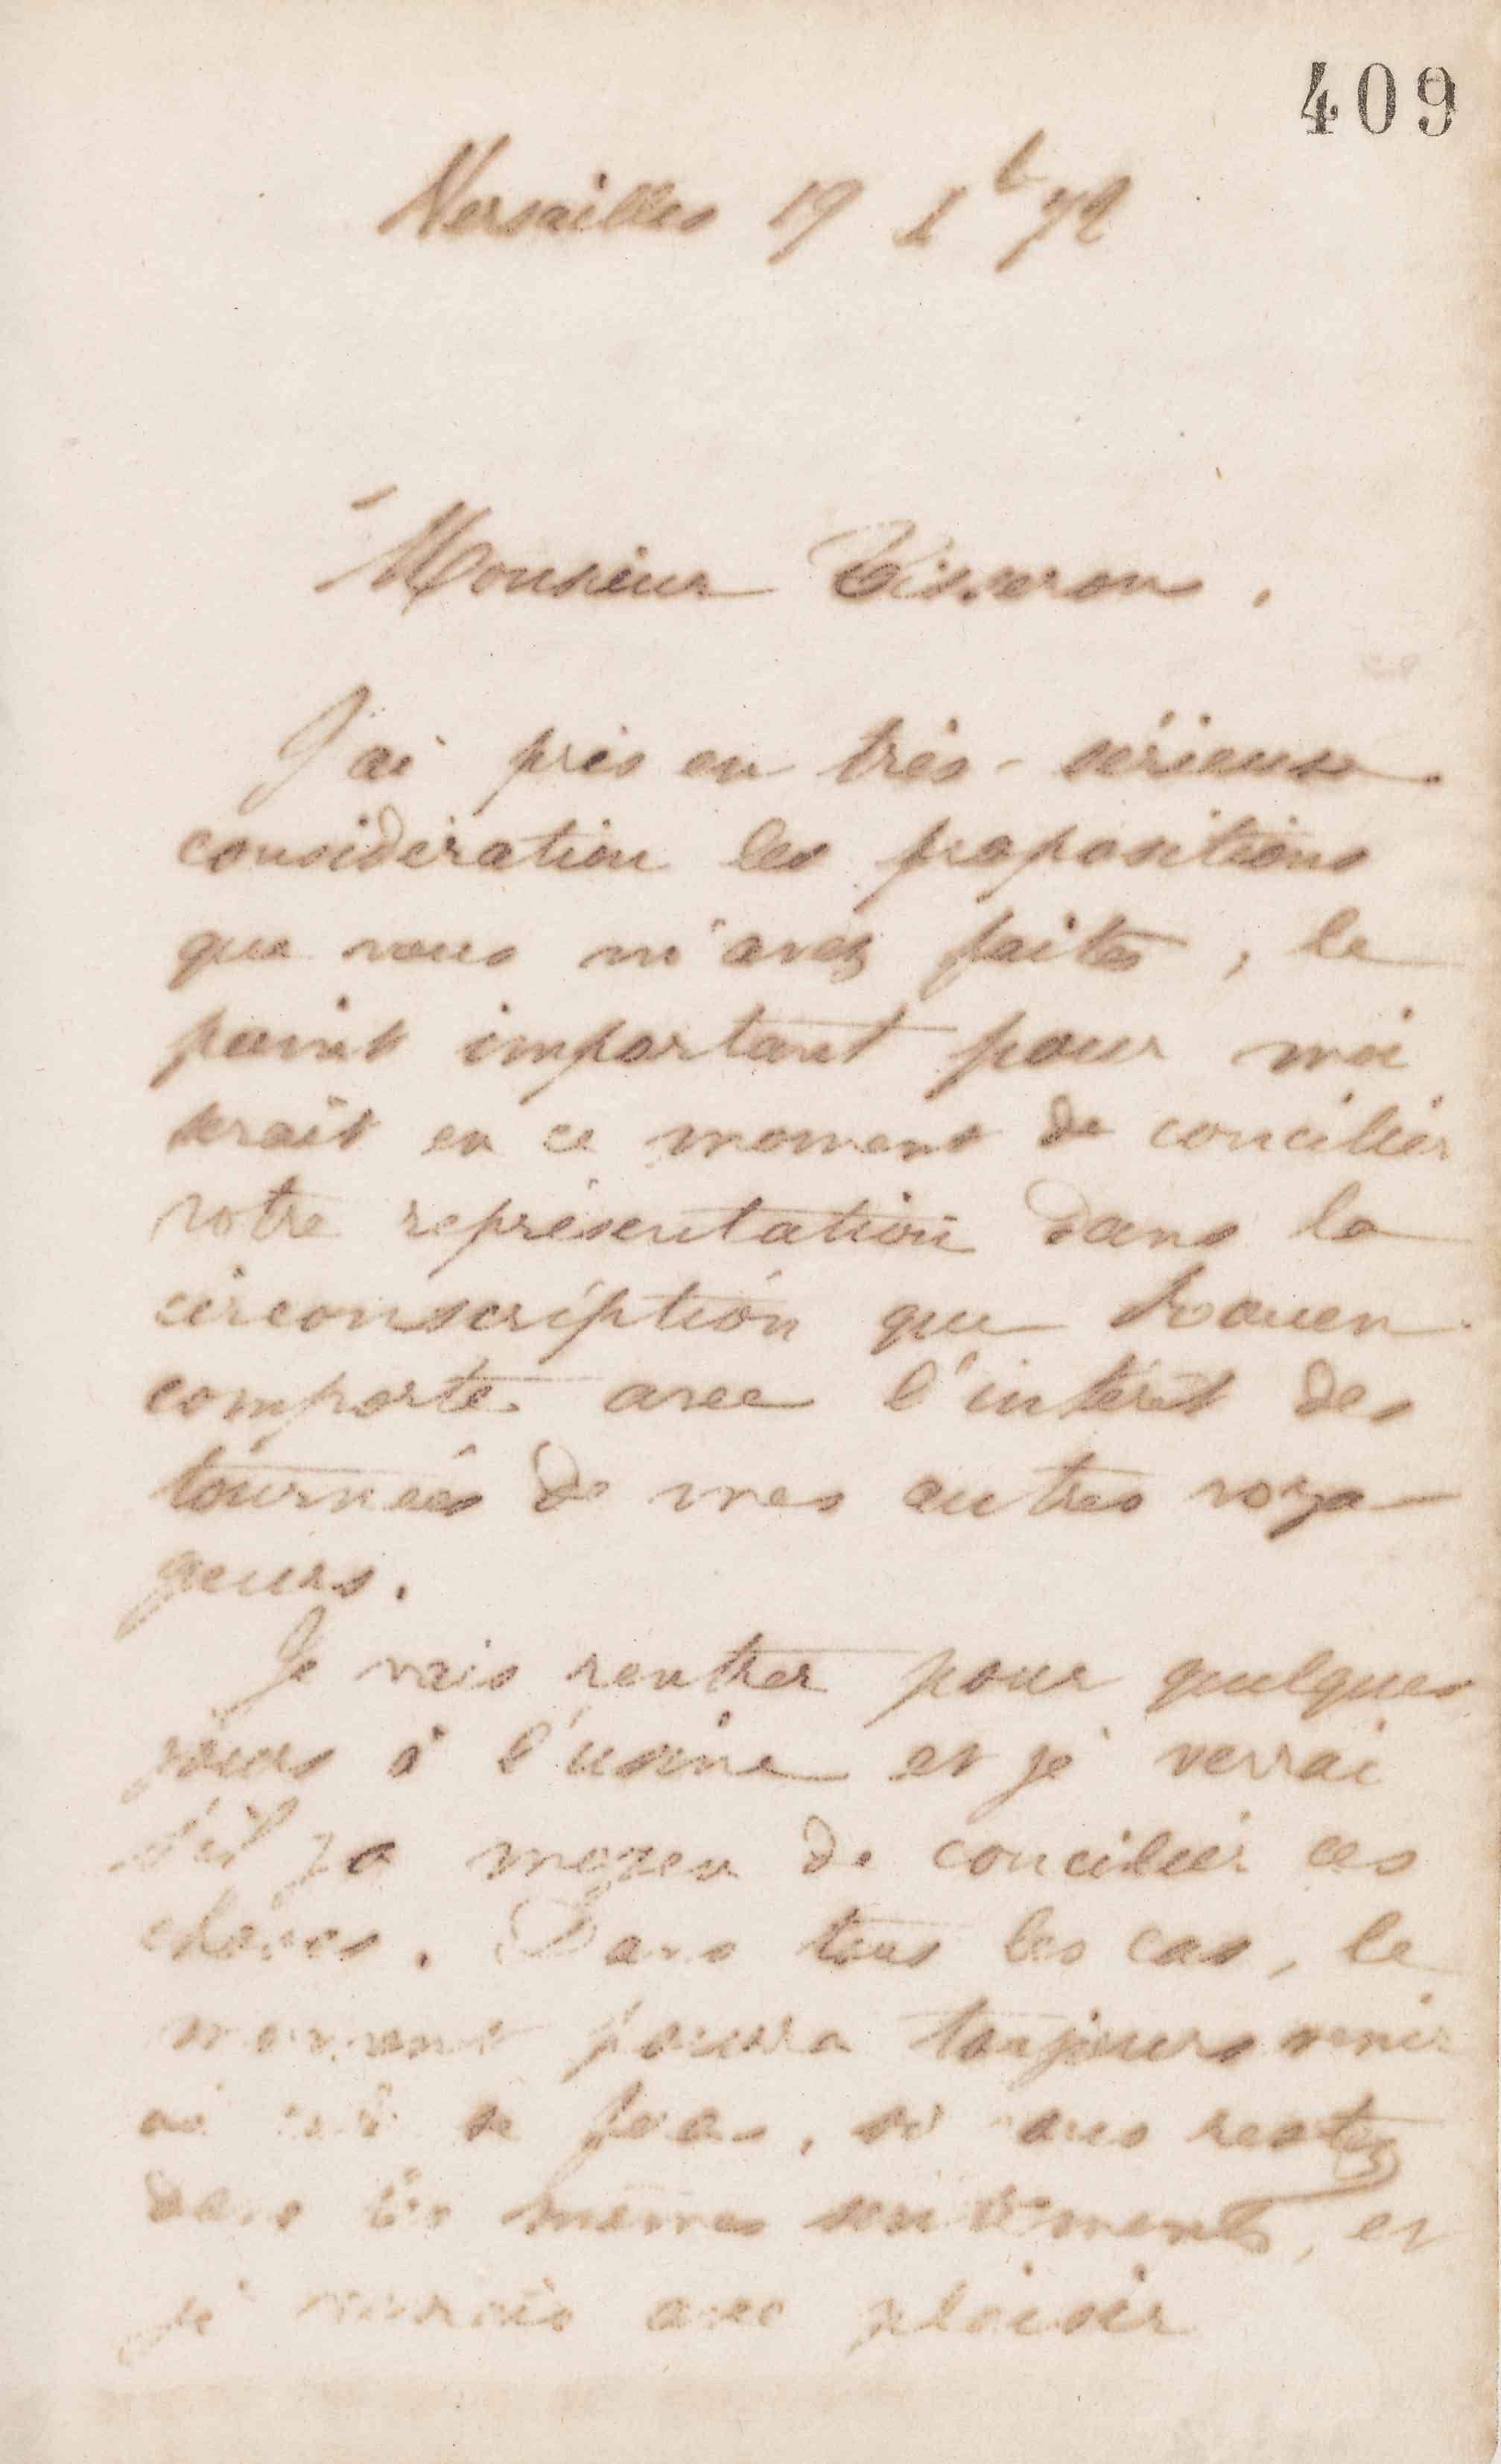 409
Versailles 19 Xbre 72
Monsieur Tisseron.
J'ai pris en très-sérieuse
considération les propositions
que vous m'avez faites, le
point important pour moi
serait en ce moment de concilier
votre représentation dans la
circonscription que Rouen
comporte avec l'intérêt des
tournées de mes autres voya-
geurs.
Je vais rentrer pour quelques
jours à l'usine et je verrai
s'il y a moyen de concilier ces
choses. Dans tous les cas, le
moment pourra toujours venir
où cela se fera, si vous restez
dans les mêmes sentiments, et
je verrais avec plaisir